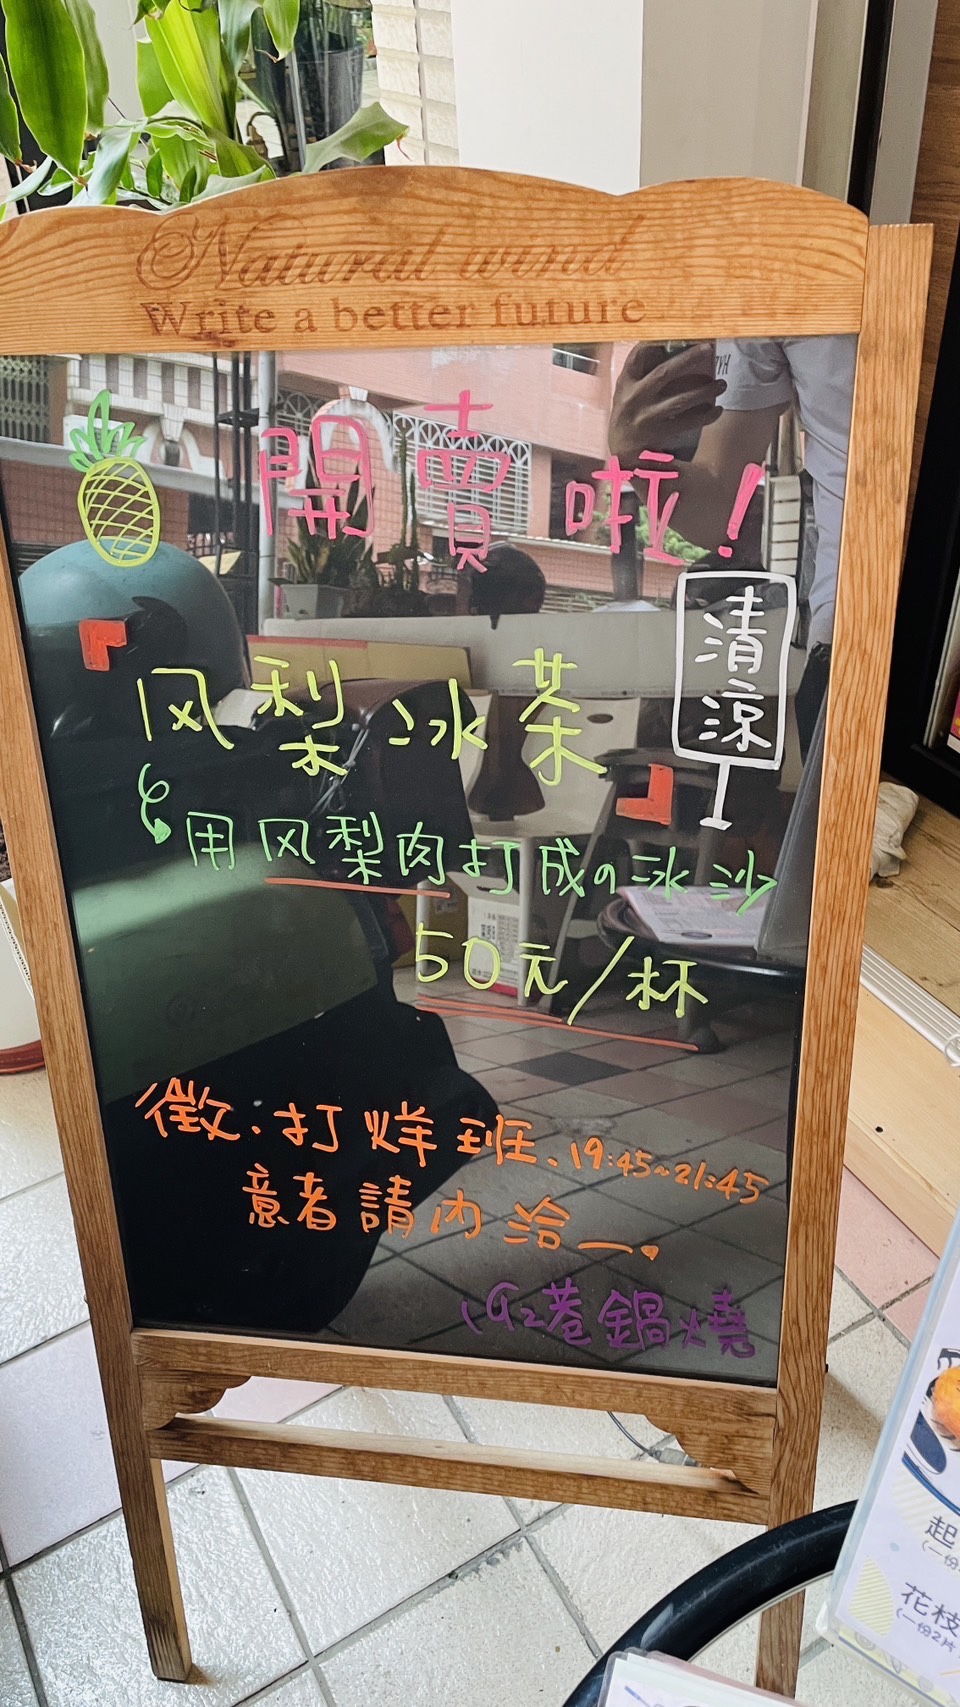 Natural wind
Write a better future
開賣啦!
清涼
「风梨冰茶」
用风梨肉打成の冰沙
50元/杯
徵:打烊班、19:45~21:45
意者請內洽
巷鍋燒
起
(一份
花枝
(一份2片